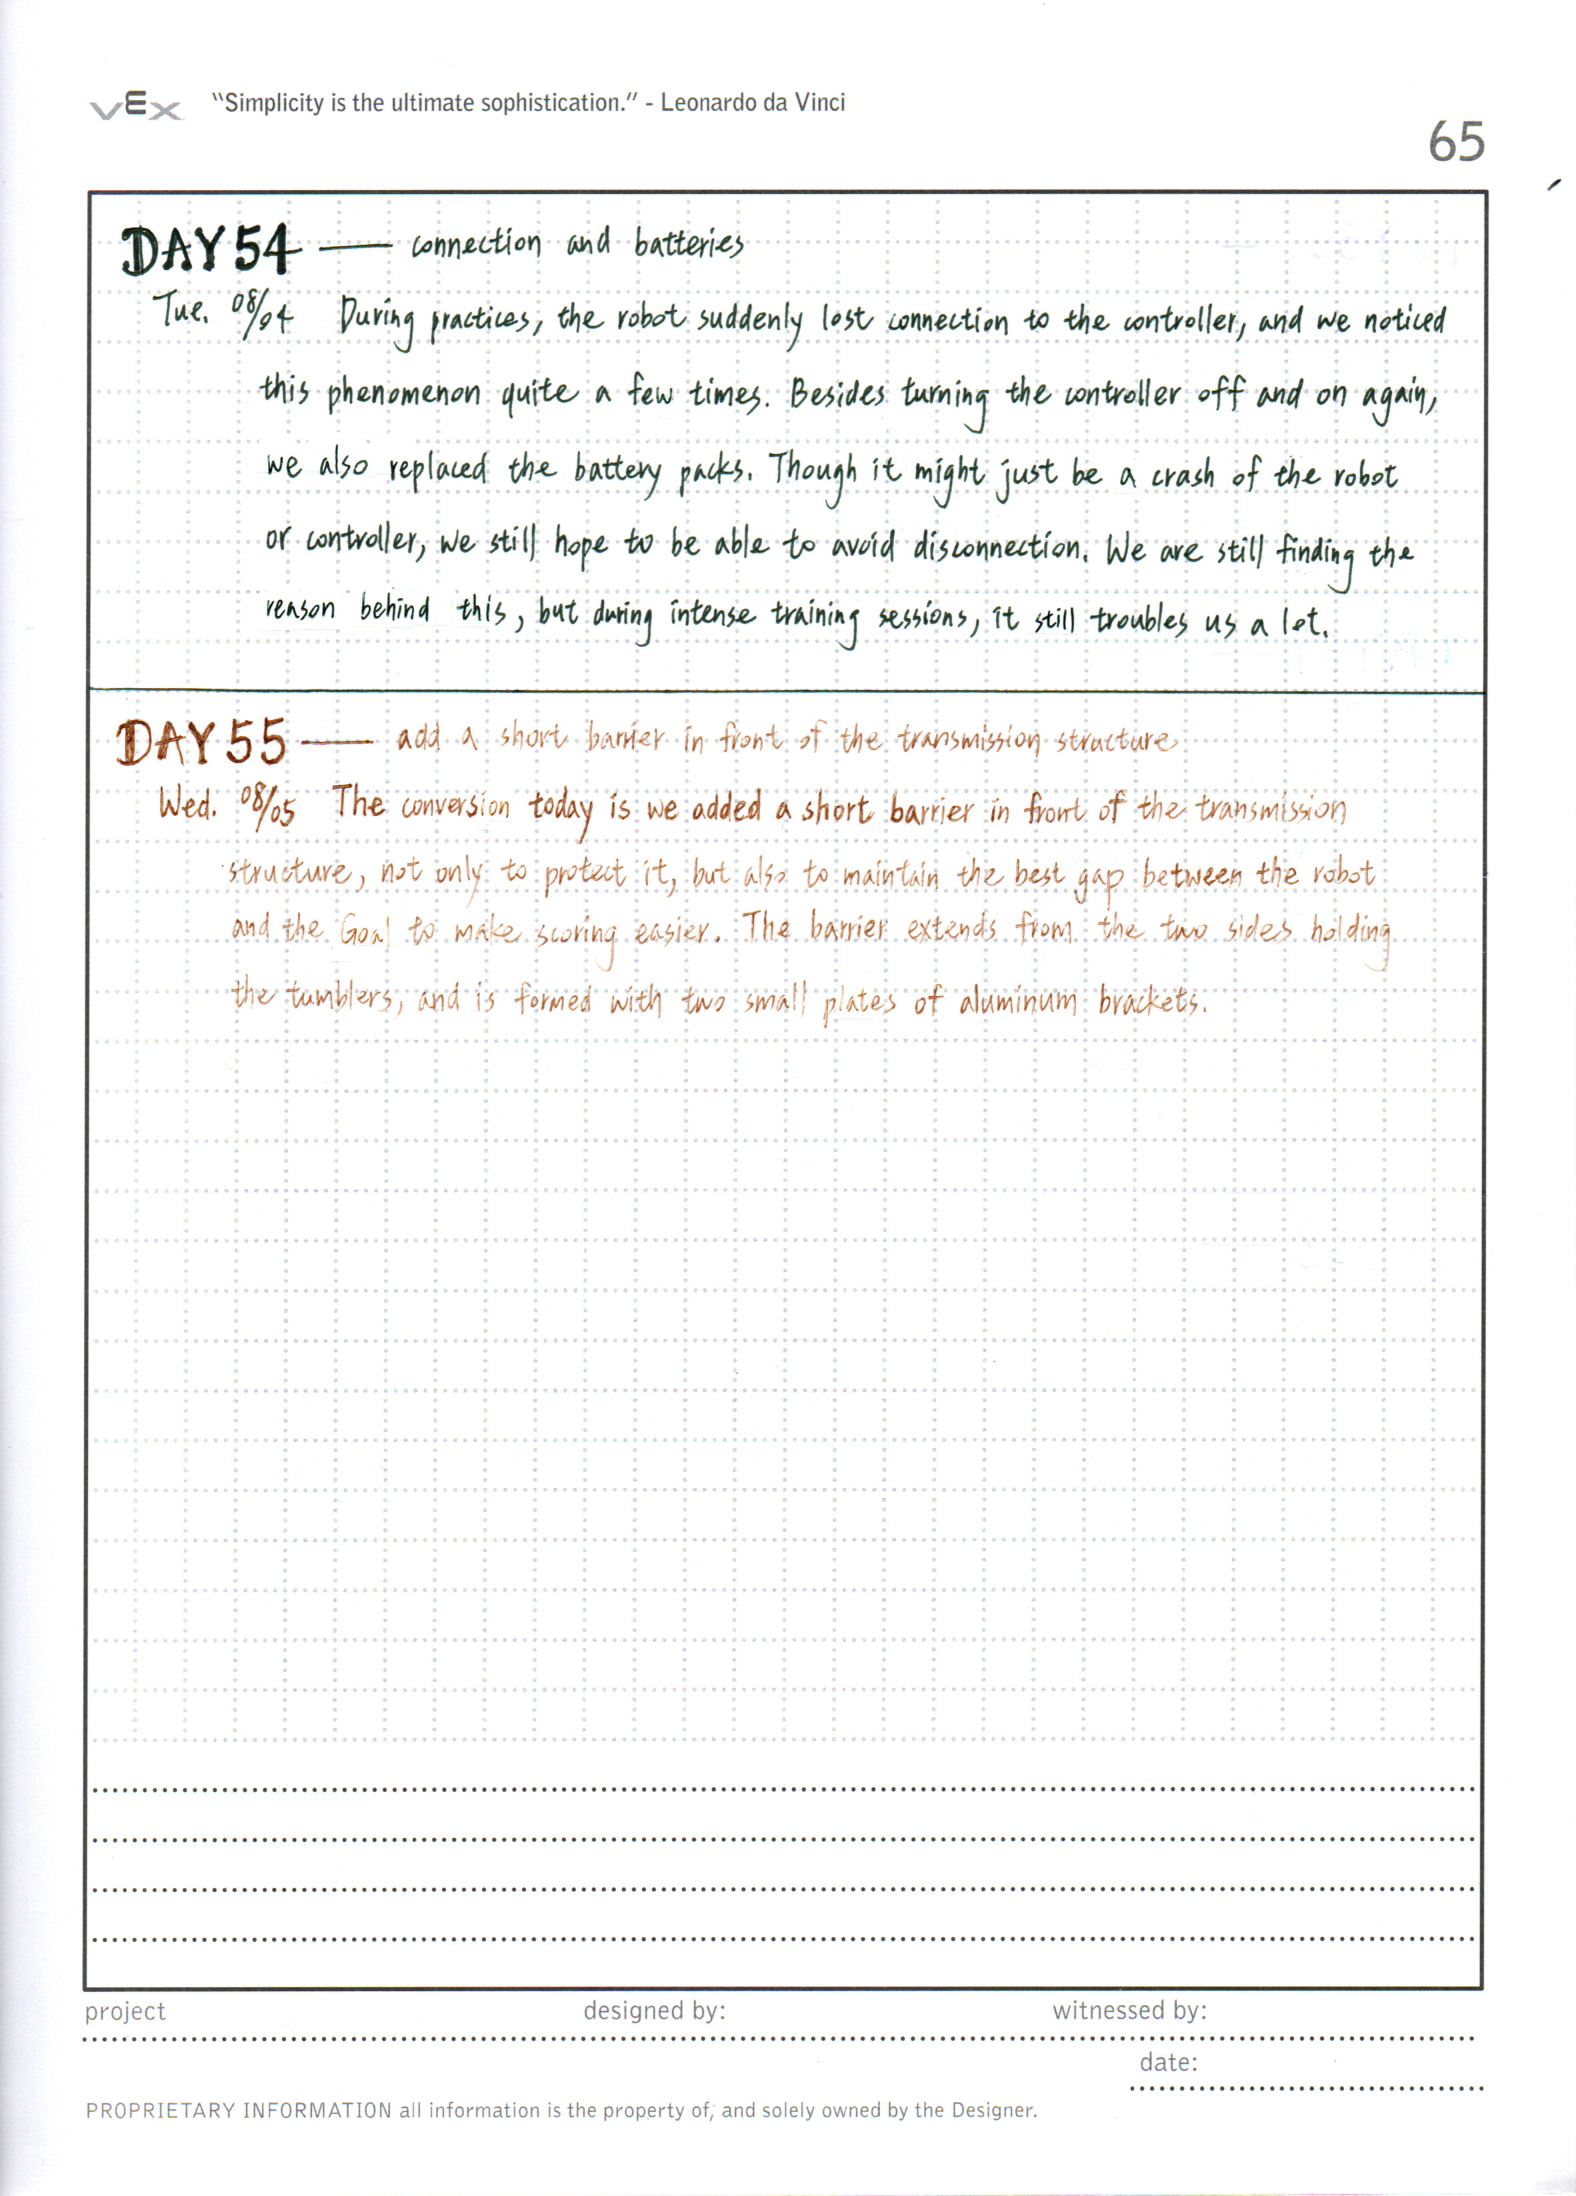 vEx "Simplicity is the ultimate sophistication." - Leonardo da Vinci
65
DAY 54 —— connection and batteries
Tue. 08/04 During practices, the robot suddenly lost connection to the controller, and we noticed
this phenomenon quite a few times. Besides turning the controller off and on again,
we also replaced the battery packs. Though it might just be a crash of the robot
or controller, we still hope to be able to avoid disconnection. We are still finding the
reason behind this, but during intense training sessions, it still troubles us a lot.
DAY 55 —— add a short barrier in front of the transmission structure
Wed. 08/05 The conversion today is we added a short barrier in front of the transmission
structure, not only to protect it, but also to maintain the best gap between the robot
and the Goal to make scoring easier. The barrier extends from the two sides holding
the tumblers, and is formed with two small plates of aluminum brackets.
project designed by: witnessed by:
date:
PROPRIETARY INFORMATION all information is the property of, and solely owned by the Designer.